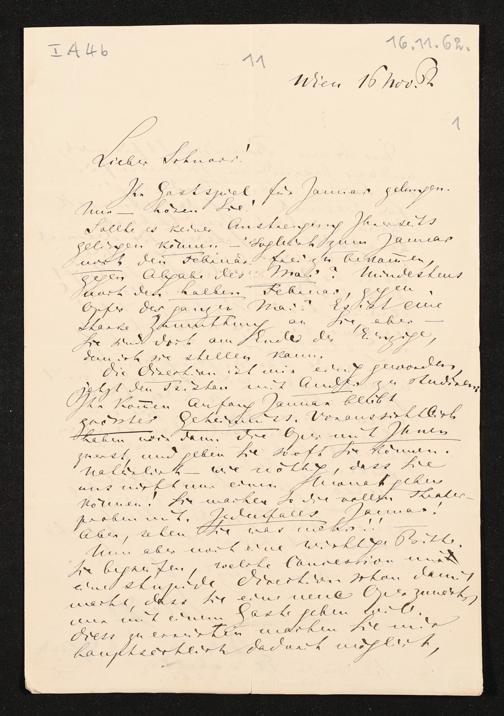 I A 4b
11
16.11.62.
Wien 16 Nov. 62
1
Lieber Schnorr!
Ihr Gastspiel für Januar gelungen.
Nun — hören Sie!
Sollte es keiner Anstrengung Ihrerseits
gelingen können — sogleich zum Januar
noch den Februar frei zu bekommen,
gegen Abgabe des Mai? Mindestens
noch den halben Februar, gegen
Opfer des ganzen Mai? Es ist eine
starke Zumuthung an Sie, aber —
Sie sind doch am Ende der Einzige,
den ich sie stellen kann.
Die Direction ist mir einig geworden,
jetzt den Tristan mit Ander zu studiren;
Ihr Kommen Anfang Januar bleibt
grösstes Geheimniss. Voraussichtlich
haben wir dann die Oper mit Ihnen
zuerst, und geben sie so oft Sie können.
Natürlich — wie nöthig, dass Sie
uns nicht nur einen Monat geben
können! Sie machen die vollen Theater-
proben mit. Jedenfalls Januar!
Aber, sehen Sie was mehr!!
Nun aber noch eine wichtige Bitte.
Sie begreifen, welche Concession mir
eine stupide Direction schon damit
macht, dass sie eine neue Oper zunächst
nur mit einem Gaste geben will.
Diess zu erwirken machen Sie mir
hauptsächlich dadurch möglich,